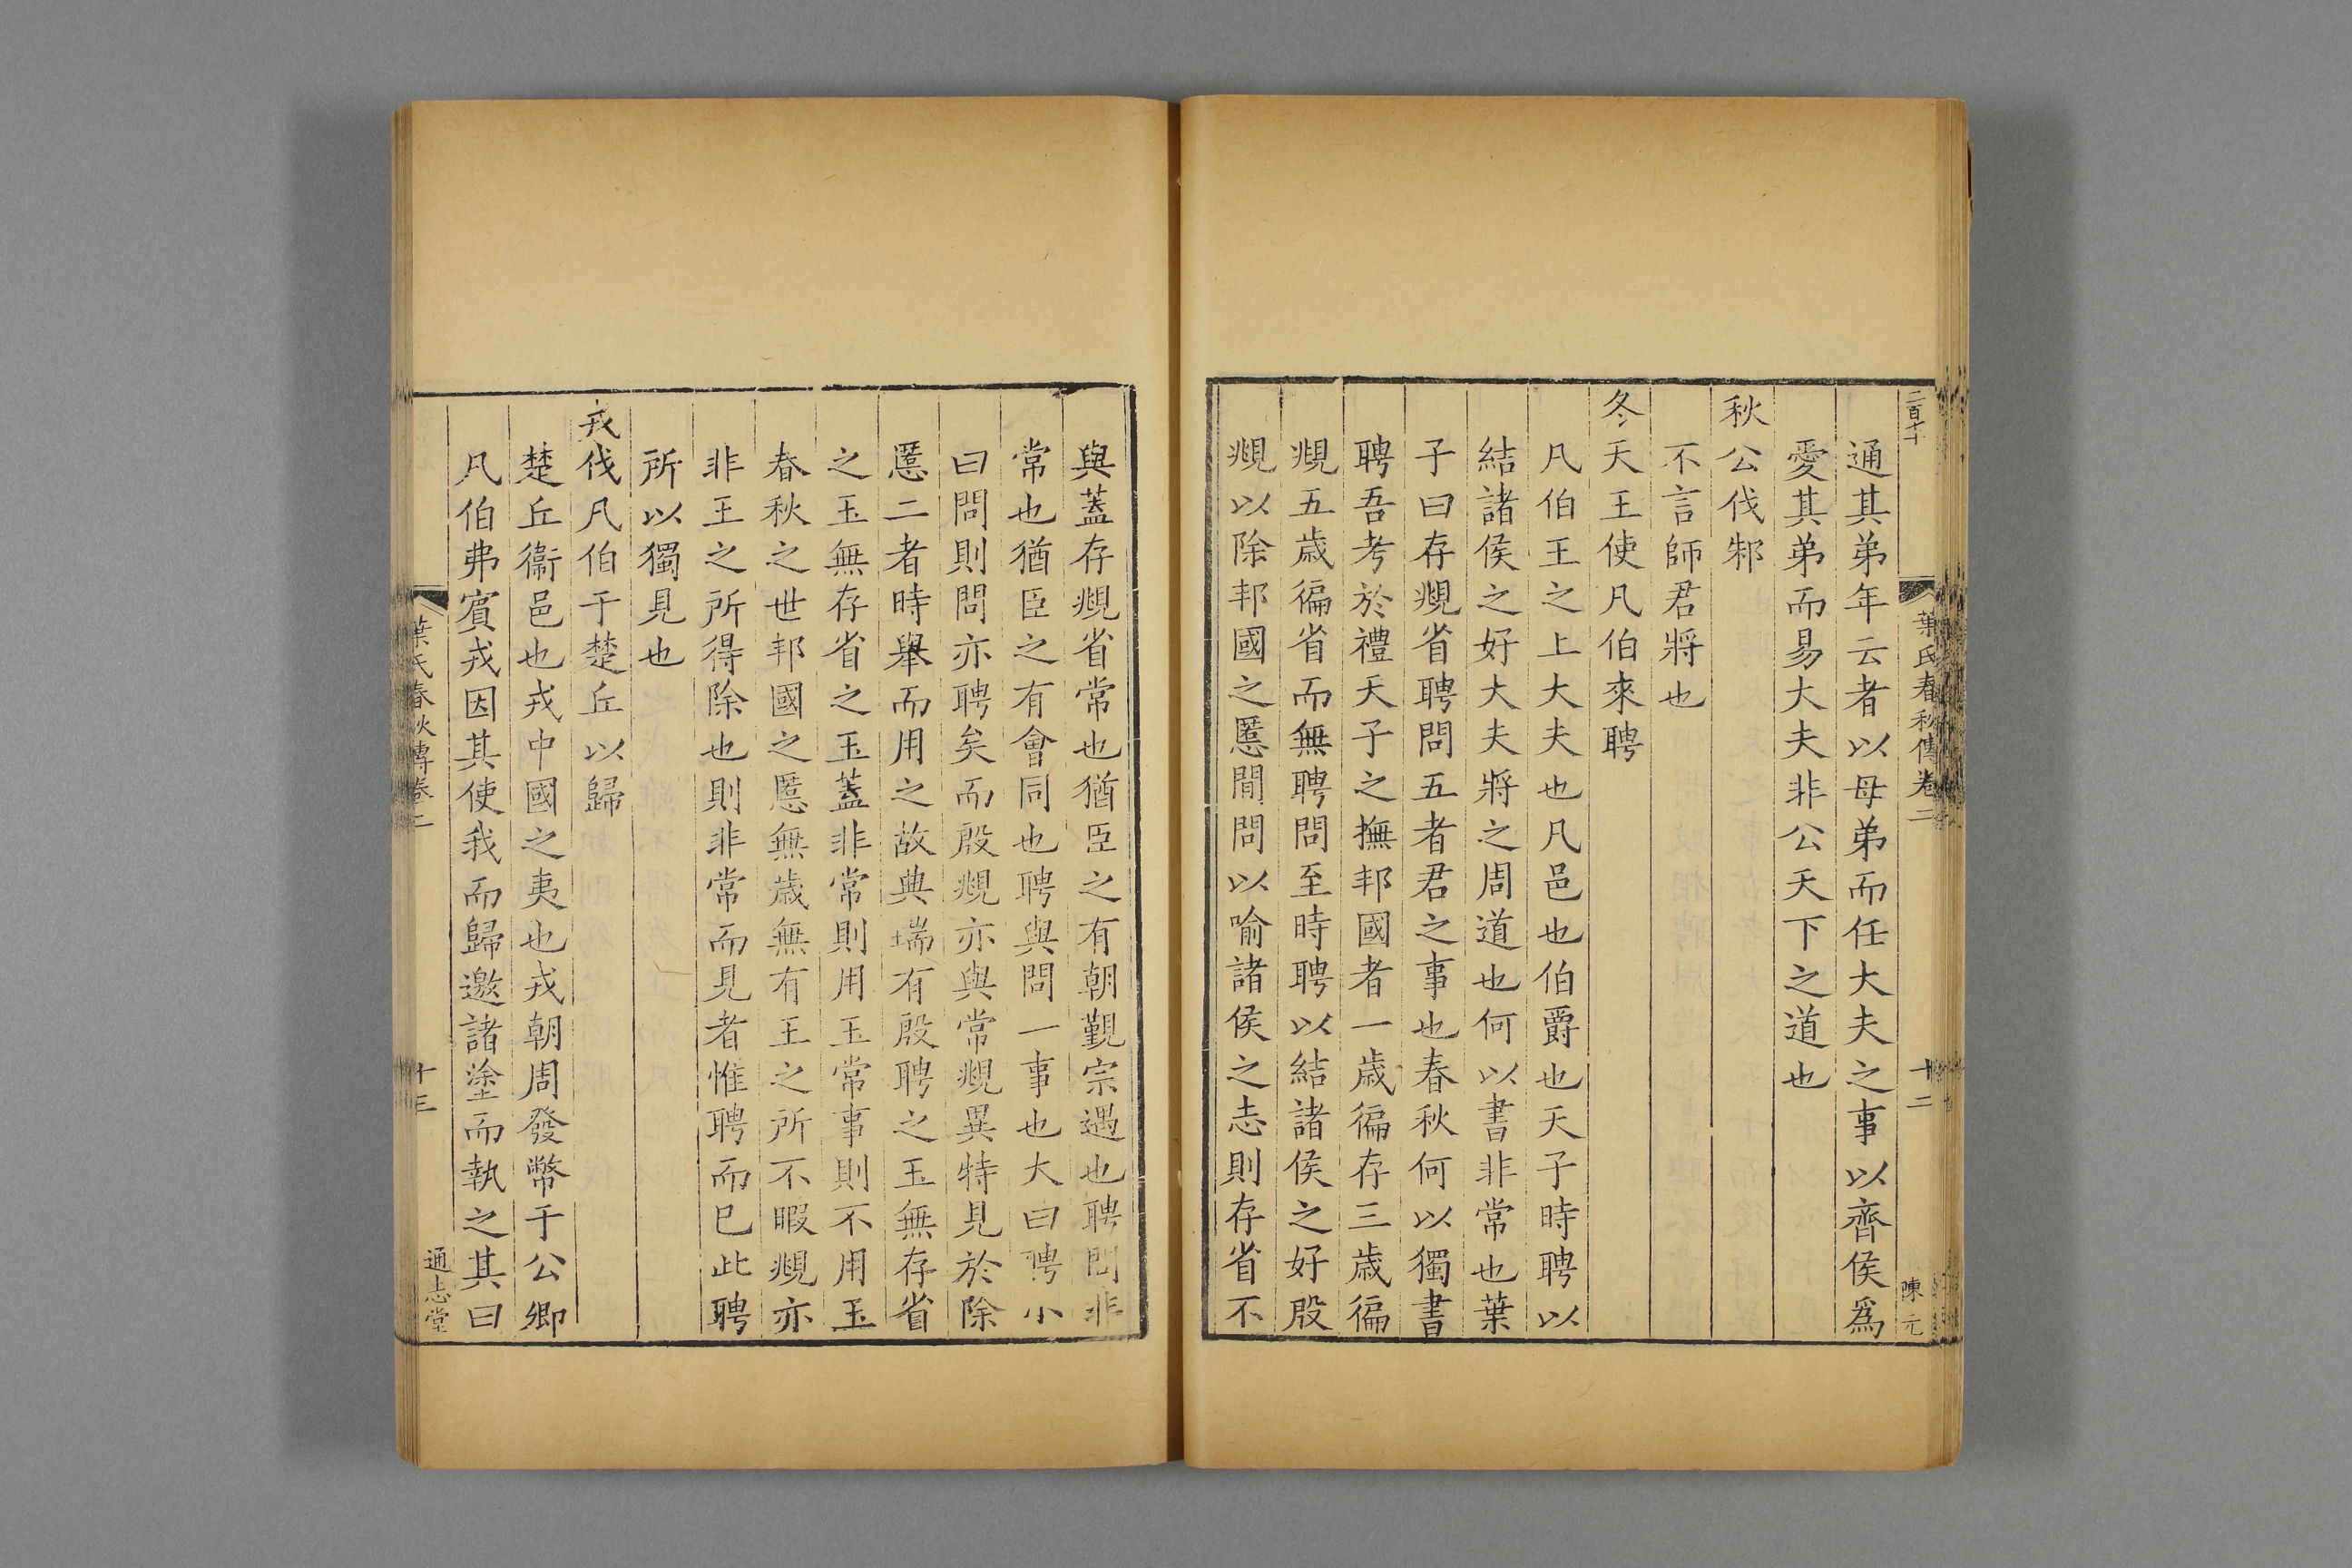 二百十
葉氏春秋傳卷二
十二
陳元
通其弟年云者以母弟而任大夫之事以齊侯爲
愛其弟而易大夫非公天下之道也
秋公伐邾
不言師君將也
冬天王使凡伯來聘
凡伯王之上大夫也凡邑也伯爵也天子時聘以
結諸侯之好大夫將之周道也何以書非常也葉
子曰存覜省聘問五者君之事也春秋何以獨書
聘吾考於禮天子之撫邦國者一歲徧存三歲徧
覜五歲徧省而無聘問至時聘以結諸侯之好殷
覜以除邦國之慝間問以喻諸侯之志則存省不
與蓋存覜省常也猶臣之有朝覲宗遇也聘問非
常也猶臣之有會同也聘與問一事也大曰聘小
曰問則問亦聘矣而殷覜亦與常覜異特見於除
慝二者時舉而用之故典瑞有殷聘之玉無存省
之玉無存省之玉蓋非常則用玉常事則不用玉
春秋之世邦國之慝無歲無有王之所不暇覜亦
非王之所得除也則非常而見者惟聘而已此聘
所以獨見也
戎伐凡伯于楚丘以歸
楚丘衞邑也戎中國之夷也戎朝周發幣于公卿
凡伯弗賓戎因其使我而歸邀諸塗而執之其曰
葉氏春秋傳卷二
十三
通志堂